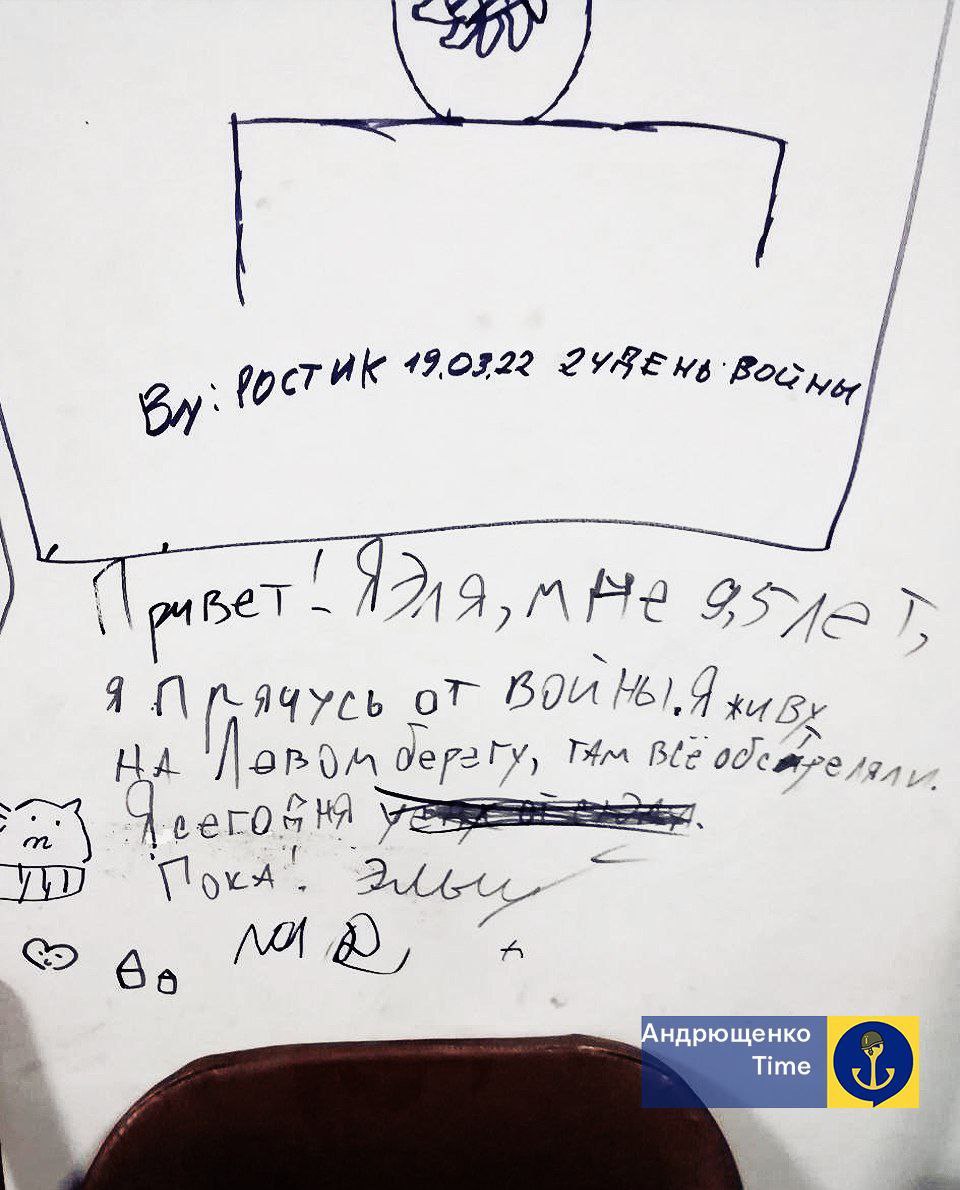 By: РОСТИК 19.03.22 24 ДЕНЬ ВОЙНЫ
Привет! Я Эля, мне 9,5 лет,
я прячусь от войны. Я живу
на Левом берегу, там всё обстреляли.
Я сегодня
Пока!
Андрющенко
Time